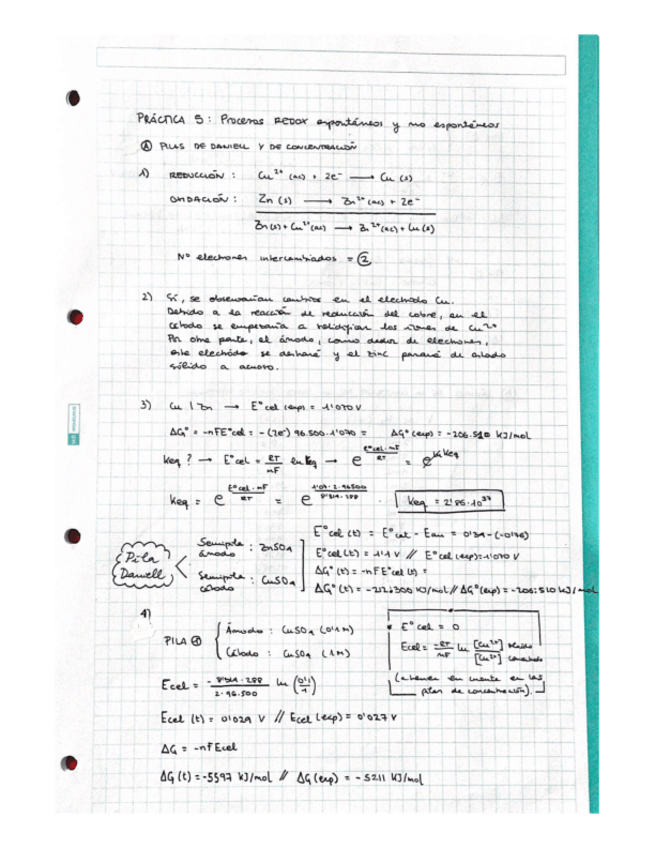 PRÁCTICA 5: Procesos REDOX espontáneos y no espontáneos
Ⓐ PILAS DE DANIELL Y DE CONCENTRACIÓN
1) REDUCCIÓN : Cu²⁺ (ac) + 2e⁻ ⟶ Cu (s)
OXIDACIÓN : Zn (s) ⟶ Zn²⁺ (ac) + 2e⁻
Zn(s) + Cu²⁺(ac) ⟶ Zn²⁺(ac) + Cu(s)
Nº electrones intercambiados = ②
2) Sí, se observarían cambios en el electrodo Cu.
Debido a la reacción de reducción del cobre, en el
cátodo se empezaría a solidificar los iones de Cu²⁺
Por otra parte, el ánodo, como dador de electrones,
este electrodo se deshará y el zinc pasará de estado
sólido a acuoso.
3) Cu | Zn ⟶ E°cel (exp) = 1'070 V
ΔG° = -nFE°cel = -(2e⁻) 96.500·1'070 = ΔG° (exp) = -206.510 KJ/mol
Keq ? → E°cel = RT/nF ln Keq → e^(E°cel·nF/RT) = e^(ln Keq)
Keq = e^(E°cel·nF/RT) = e^(1'07·2·96500/8'314·288) . Keq = 2'85·10³⁷
Pila Daniell
Semipila ánodo : ZnSO₄
Semipila cátodo : CuSO₄
E°cel (t) = E°cat - Ean = 0'34 - (-0'76)
E°cel (t) = 1'1 V // E°cel (exp) = 1'070 V
ΔG° (t) = -nFE°cel (t) =
ΔG° (t) = -212.300 KJ/mol // ΔG° (exp) = -206.510 KJ/mol
4)
PILA ①
Ánodo : CuSO₄ (0'1 M)
Cátodo : CuSO₄ (1 M)
* E°cel = 0
Ecel = -RT/nF ln [Cu²⁺] diluido / [Cu²⁺] concentrado
(a tener en cuenta en las
pilas de concentración).
Ecel = - 8'314·288 / 2·96.500 ln (0'1/1)
Ecel (t) = 0'029 V // Ecel (exp) = 0'027 V
ΔG = -nFEcel
ΔG (t) = -5597 KJ/mol // ΔG (exp) = -5211 KJ/mol